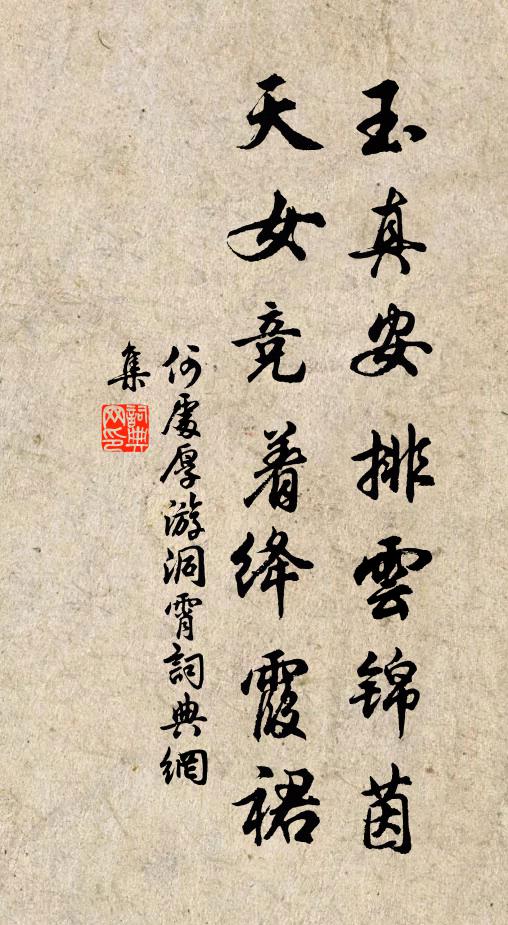 玉真安排雲锦茵
天女竞着绛霞裙
何處厚游洞霄詞典網
集
詞典
网印